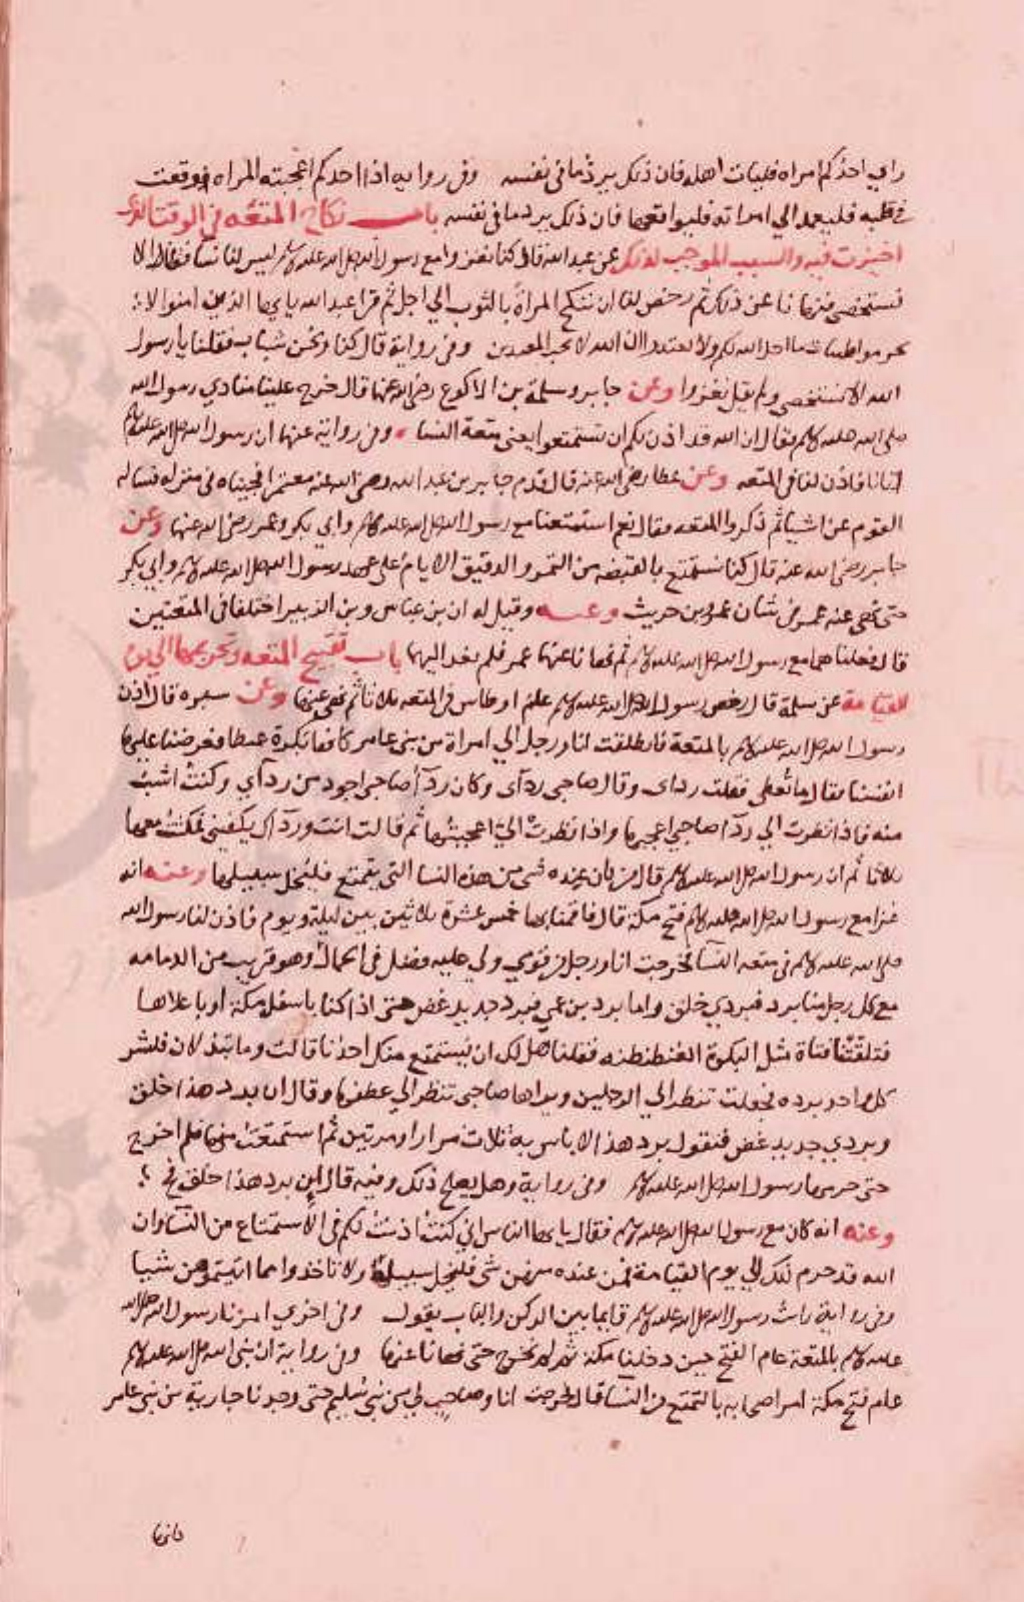 راي احدكم امراه فليات اهله فان ذلك يرد ما في نفسه وفي روايه اذا احدكم اعجبته المراه فوقعت
في قلبه فليعمد الي امراته فليواقعها فان ذلك يرد ما في نفسه باب نكاح المتعه في الوقت الذي
اجيزت فيه والسبب الموجب لذلك عن عبد الله قال كنا نغزوا مع رسول الله صلى الله عليه وسلم ليس لنا نسا فقلنا الا
نستخصي فنهانا عن ذلك ثم رخص لنا ان ننكح المراة بالثوب الي اجل ثم قرا عبد الله يا يها الذين امنوا لا
تحرموا طيبات ما احل الله لكم ولا تعتدوا ان الله لا يحب المعتدين وفي رواية قال كنا ونحن شباب فقلنا يا رسول
الله الا نستخصي ولم يقل نغزوا وعن جابر وسلمة بن الاكوع رضي الله عنهما قال خرج علينا منادي رسول الله
صلى الله عليه وسلم فقال ان الله قد اذن لكم ان تستمتعوا يعني متعة النسا وفي رواية عنهما ان رسول الله صلى الله عليه وسلم
اتانا فاذن لنا في المتعه وعن عطا رضي الله عنه قال قدم جابر بن عبد الله رضي الله عنه معتمرا فجيناه في منزله فساله
القوم عن اشيا ثم ذكروا المتعه فقال نعم استمتعنا مع رسول الله صلى الله عليه وسلم وابي بكر وعمر رضي الله عنهما وعن
جابر رضي الله عنه قال كنا نستمتع بالقبضه من التمر والدقيق الايام على عهد رسول الله صلى الله عليه وسلم وابي بكر
حتى نهى عنه عمر في شان عمرو بن حريث وعنه وقيل له ان بن عباس وبن الزبير اختلفا في المتعتين
قال فعلناهما مع رسول الله صلى الله عليه وسلم ثم نهانا عنهما عمر فلم نعد اليهما باب نسخ المتعه وتحريمها الي يوم
القيامة عن سلمة قال رخص رسول الله صلى الله عليه وسلم عام اوطاس في المتعه ثلاثا ثم نهى عنها وعن سبره قال اذن
رسول الله صلى الله عليه وسلم بالمتعة فانطلقت انا ورجل الي امراة من بني عامر كانها بكرة عيطا فعرضنا عليها
انفسنا فقال ما تعطي فقلت رداي وقال صاحبي رداي وكان ردا صاحبي اجود من رداي وكنت اشب
منه فاذا نظرت الي ردا صاحبي اعجبها واذا نظرت الي اعجبتها ثم قالت انت ورداك يكفيني فمكثت معها
ثلاثا ثم ان رسول الله صلى الله عليه وسلم قال من كان عنده شي من هذه النسا التي يتمتع فليخل سبيلها وعنه انه
غزا مع رسول الله صلى الله عليه وسلم فتح مكة قال فاقمنا بها خمس عشرة ثلاثين بين ليلة ويوم فاذن لنا رسول الله
صلى الله عليه وسلم في متعه النسا فخرجت انا ورجل من قومي ولي عليه فضل في الجمال وهو قريب من الدمامه
مع كل رجل منا برد فبردي خلق واما برد بن عمي فبرد جديد غض حتى اذا كنا باسفل مكة او باعلاها
فتلقتنا فتاة مثل البكرة العنطنطه فقلنا هل لك ان يستمتع منك احدنا قالت وما تبذلان فنشر
كل واحد برده فجعلت تنظر الي الرجلين ويراها صاحبي تنظر الي عطفها وقال ان برد هذا خلق
وبردي جديد غض فتقول برد هذا لا باس به ثلاث مرار او مرتين ثم استمتعت منها فلم اخرج
حتى حرمها رسول الله صلى الله عليه وسلم وفي رواية وهل يصلح ذلك وفيه قال ان برد هذا خلق مح
وعنه انه كان مع رسول الله صلى الله عليه وسلم فقال يا يها الناس اني كنت اذنت لكم في الاستمتاع من النسا وان
الله قد حرم ذلك الي يوم القيامة فمن عنده منهن شي فليخل سبيله ولا تاخذوا مما اتيتموهن شيا
وفي رواية رايت رسول الله صلى الله عليه وسلم قايما بين الركن والباب يقول وفي اخري امرنا رسول الله صلى الله
عليه وسلم بالمتعة عام الفتح حين دخلنا مكة ثم لم نخرج حتى نهانا عنها وفي رواية ان نبي الله صلى الله عليه وسلم
عام فتح مكة امر اصحابه بالتمتع من النسا قال فخرجت انا وصاحب لي من بني سليم حتى وجدنا جارية من بني عامر
كانها